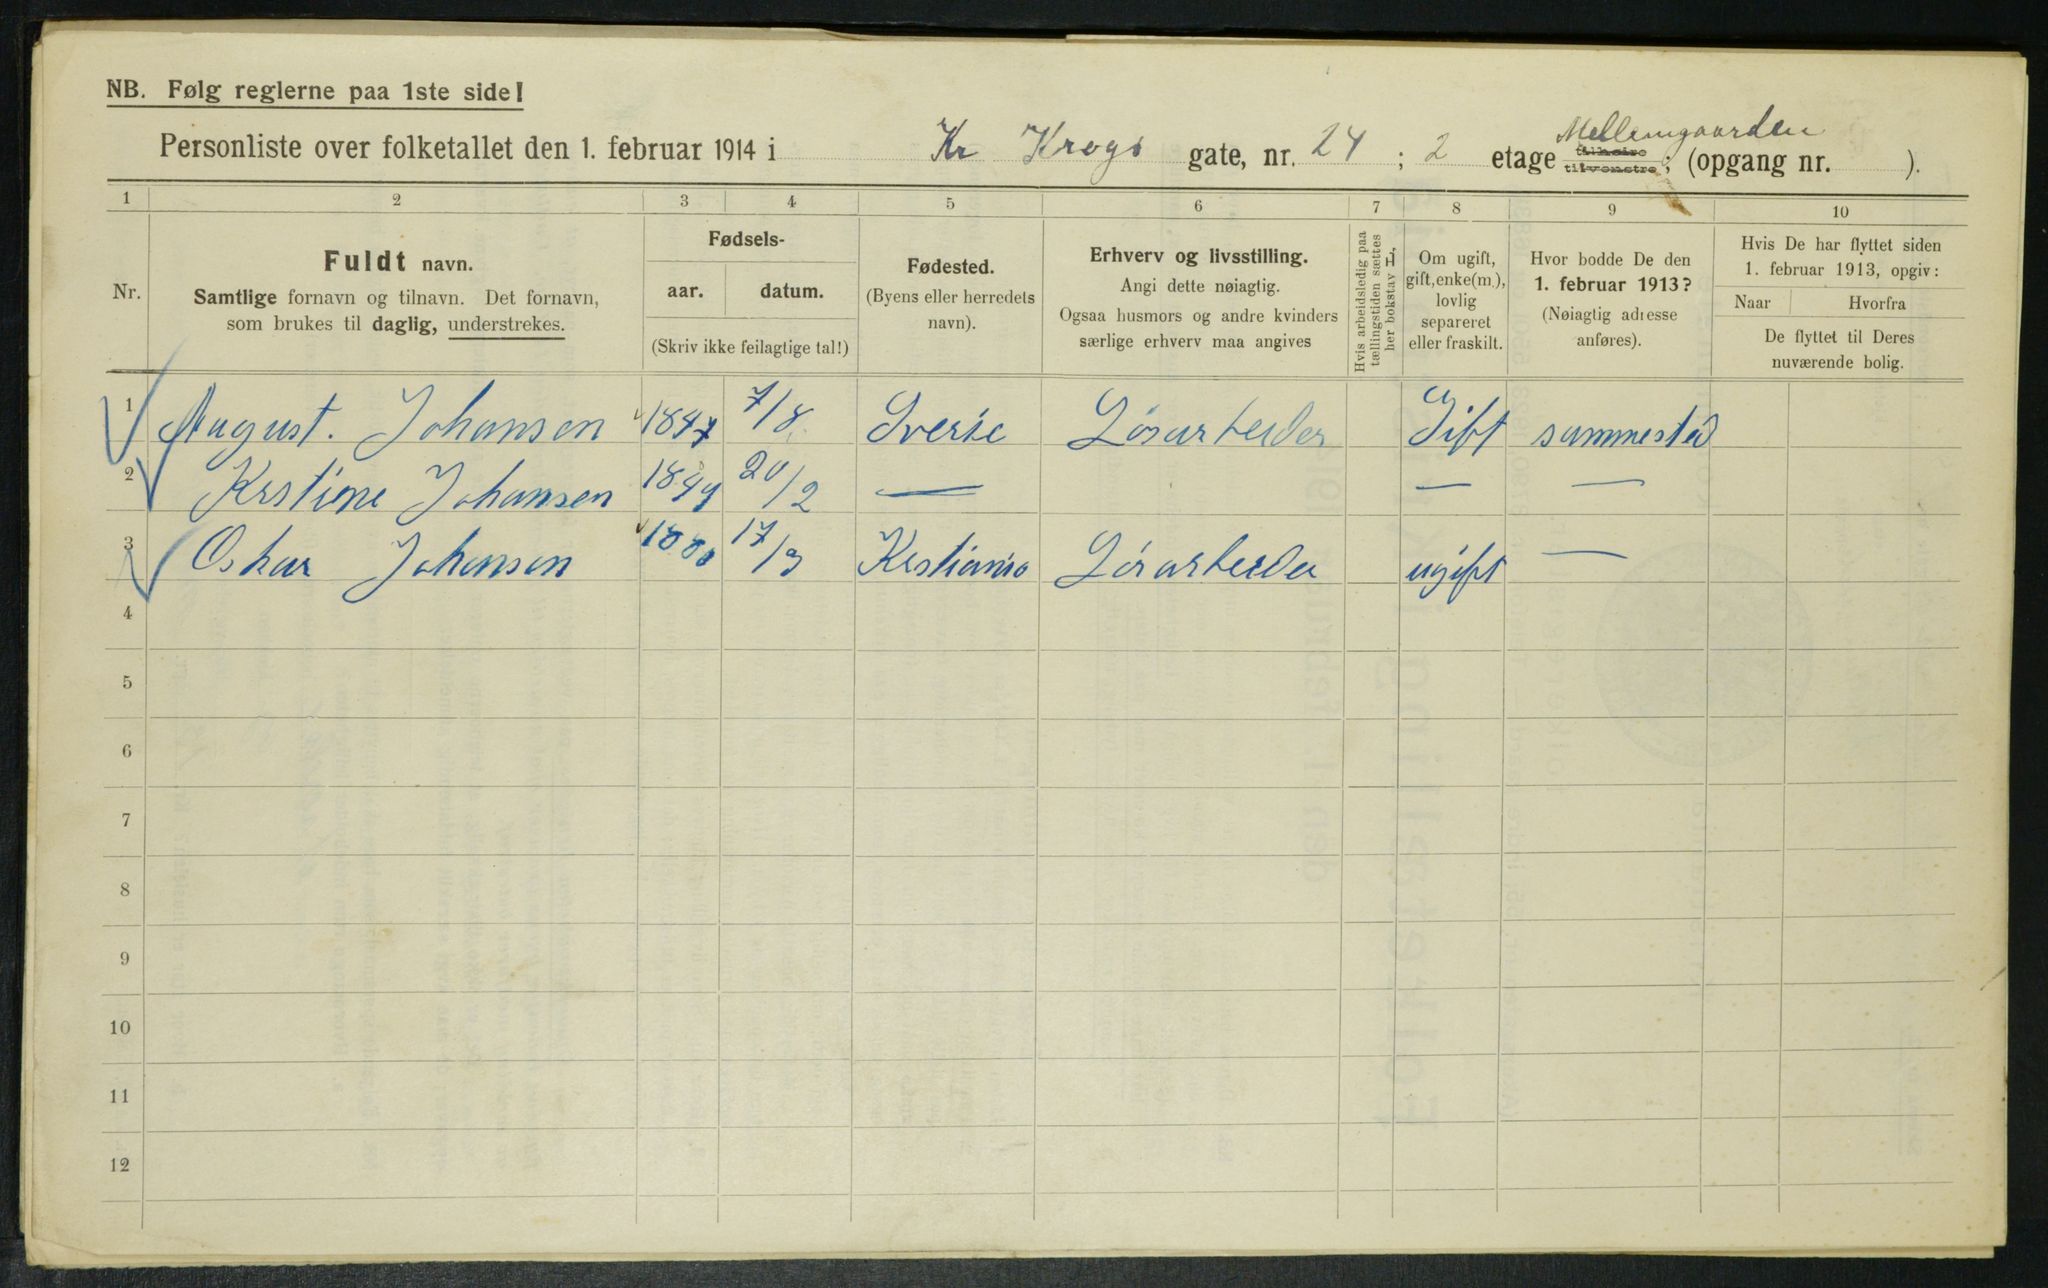 NB. Følg reglerne paa 1ste side!
Personliste over folketallet den 1. februar 1914 i Kr Krogs gate, nr. 24; 2 etage Mellemgaarden tilhøire tilvenstre; (opgang nr. ).
1 2 3 4 5 6 7 8 9 10
Nr.
Fuldt navn.
Samtlige fornavn og tilnavn. Det fornavn,
som brukes til daglig, understrekes.
Fødsels-
aar. datum.
(Skriv ikke feilagtige tal!)
Fødested.
(Byens eller herredets
navn).
Erhverv og livsstilling.
Angi dette nøiagtig.
Ogsaa husmors og andre kvinders
særlige erhverv maa angives
Hvis arbeidsledig paa
tællingstiden sættes
her bokstav L.
Om ugift,
gift, enke(m.),
lovlig
separeret
eller fraskilt.
Hvor bodde De den
1. februar 1913?
(Nøiagtig adresse
anføres).
Hvis De har flyttet siden
1. februar 1913, opgiv:
Naar Hvorfra
De flyttet til Deres
nuværende bolig.
1 August. Johansen 1847 7/8 Sverie Løsarbeider Gift sammested
2 Krstine Johansen 1849 20/2 — — —
3 Oskar Johansen 1880 17/3 Krstiania Løsarbeider ugift —
4
5
6
7
8
9
10
11
12